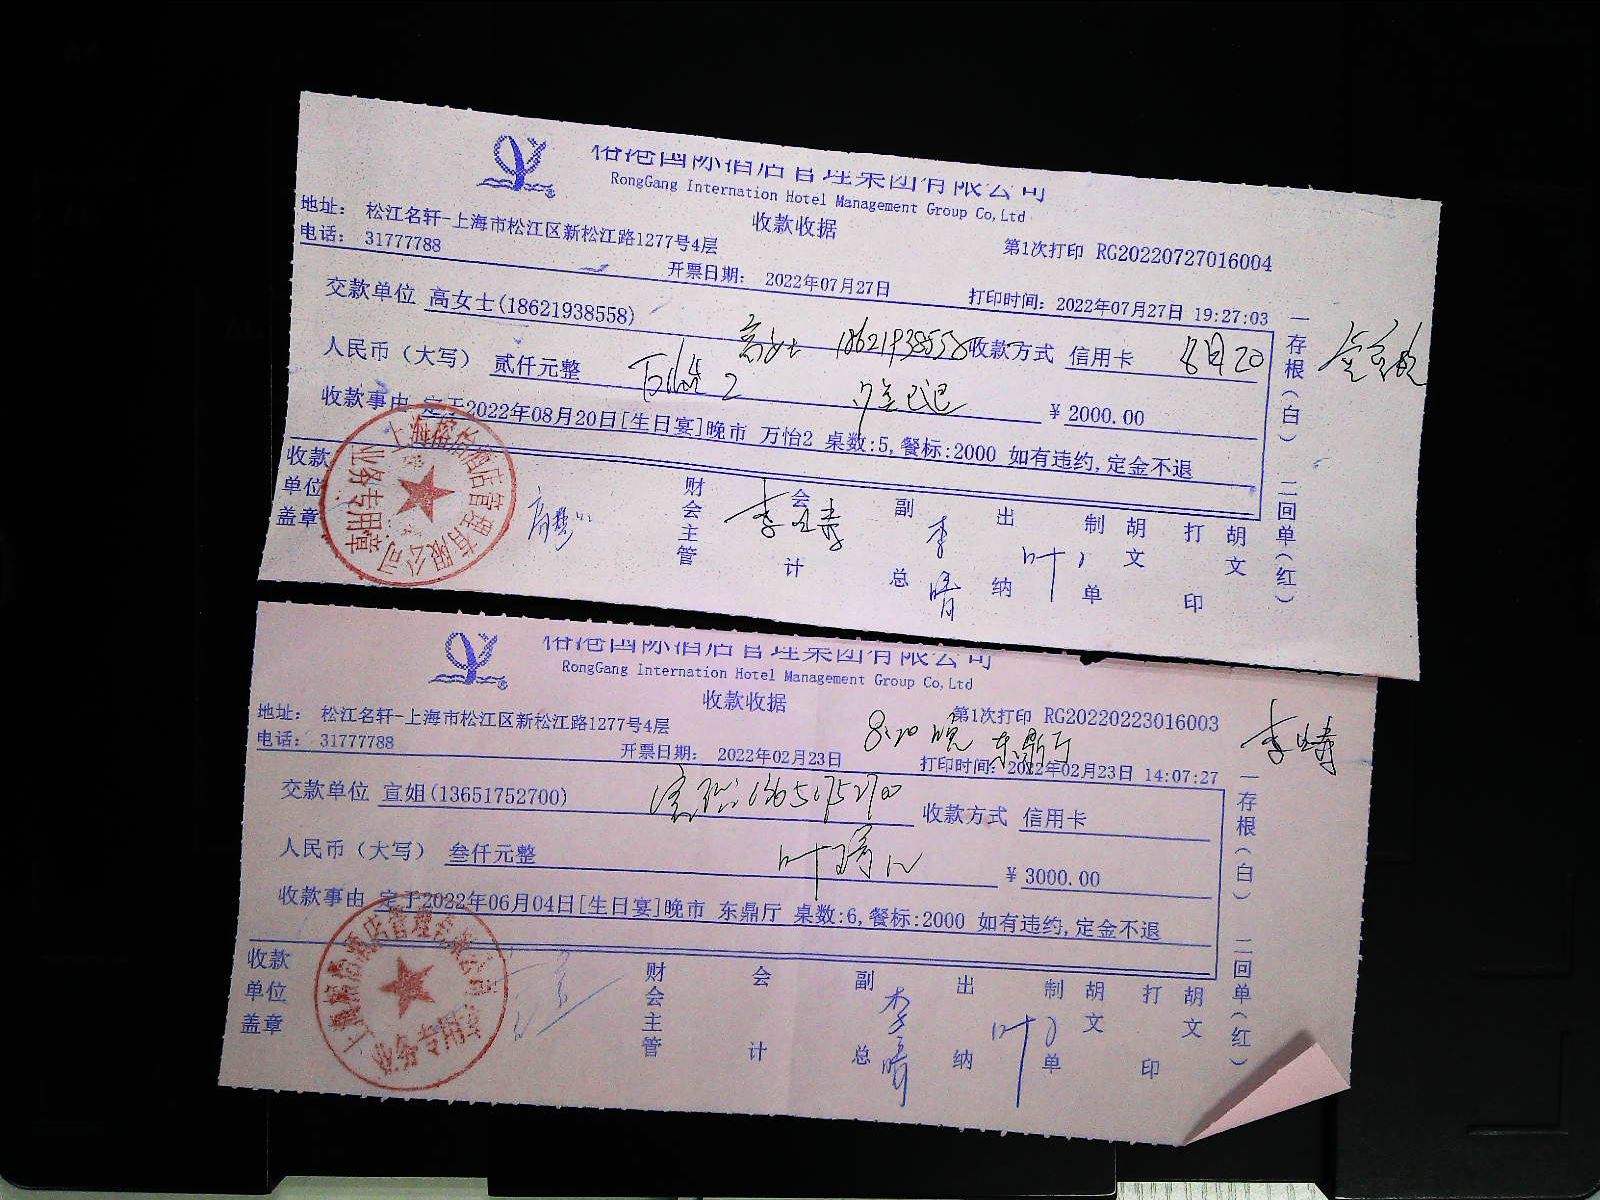 榕港国际酒店管理集团有限公司
RongGang Internation Hotel Management Group Co,Ltd
收款收据
地址： 松江名轩-上海市松江区新松江路1277号4层
第1次打印 RG20220727016004
电话： 31777788
开票日期： 2022年07月27日
打印时间：2022年07月27日 19:27:03
交款单位 高女士(18621938558)
高女士 18621938558
收款方式 信用卡
8月20
人民币（大写） 贰仟元整
万怡2
￥2000.00
收款事由 定于2022年08月20日[生日宴]晚市 万怡2 桌数:5,餐标:2000 如有违约,定金不退
收款单位盖章
业务专用章
财会主管
会计
副总
李晴
出纳
叶
制单
胡文
打印
胡文
一存根（白） 二回单（红）
榕港国际酒店管理集团有限公司
RongGang Internation Hotel Management Group Co,Ltd
收款收据
地址： 松江名轩-上海市松江区新松江路1277号4层
第1次打印 RG20220223016003
电话： 31777788
开票日期： 2022年02月23日
8.20 晚 东鼎厅
打印时间：2022年02月23日 14:07:27
交款单位 宣姐(13651752700)
13651752700
收款方式 信用卡
人民币（大写） 叁仟元整
￥3000.00
收款事由 定于2022年06月04日[生日宴]晚市 东鼎厅 桌数:6,餐标:2000 如有违约,定金不退
收款单位盖章
业务专用章
财会主管
会计
副总
李晴
出纳
叶
制单
胡文
打印
胡文
一存根（白） 二回单（红）